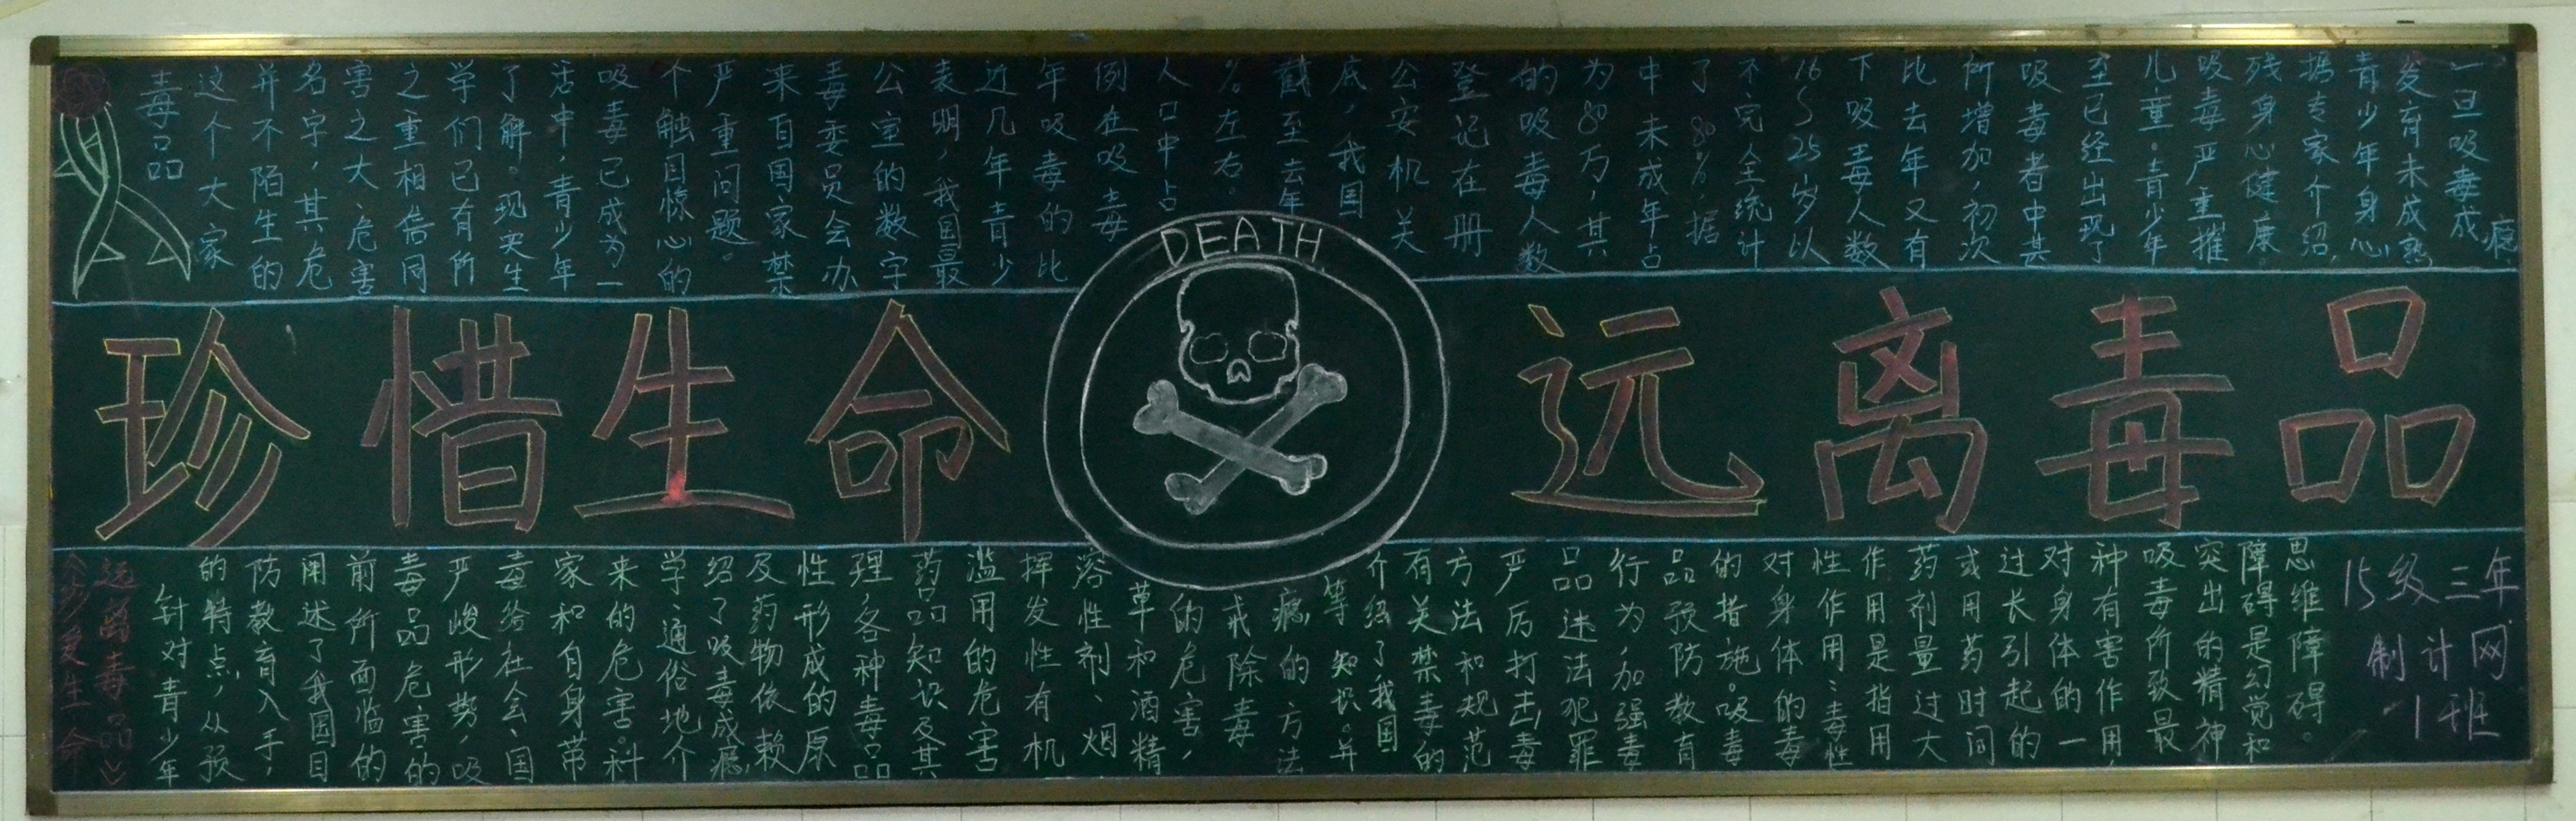 毒品
这个大家
并不陌生的
名字，其危
害之大、危害
之重相信同
学们已有所
了解。现实生
活中，青少年
吸毒已成为一
个触目惊心的
严重问题。
来自国家禁
毒委员会办
公室的数字
表明，我国最
近几年青少
年吸毒的比
例在吸毒
人口中占
%左右。
截至去年
底，我国
公安机关
登记在册
的吸毒人数
为80万，其
中未成年占
了80%，据
不完全统计
16~25岁以
下吸毒人数
比去年又有
所增加，初次
吸毒者中其
至已经出现了
儿童。青少年
吸毒严重摧
残身心健康。
据专家介绍，
青少年身心
发育未成熟
一旦吸毒成
瘾
珍惜生命
DEATH
远离毒品
《珍爱生命
远离毒品》
针对青少年
的特点，从预
防教育入手，
阐述了我国目
前所面临的
毒品危害的
严峻形势，吸
毒给社会、国
家和自身带
来的危害。科
学、通俗地介
绍了吸毒成瘾
及药物依赖
性形成的原
理，各种毒品
药品知识及其
滥用的危害
挥发性有机
溶性剂、烟
草和酒精
的危害，
戒除毒
瘾的方法
等知识。并
介绍了我国
有关禁毒的
方法和规范
严厉打击毒
品违法犯罪
行为，加强毒
品预防教育
的措施。吸毒
对身体的毒
性作用：毒性
作用是指用
药剂量过大
或用药时间
过长引起的
对身体的一
种有害作用，
吸毒所致最
突出的精神
障碍是幻觉和
思维障碍。
15级三年
制计网
1班